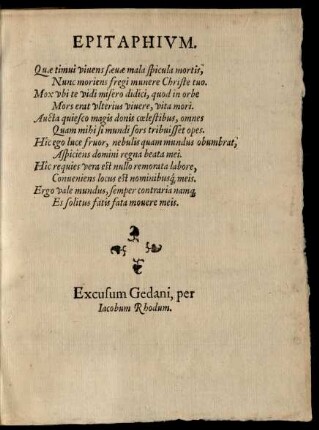 EPITAPHIVM.
Quæ timui viuens sæuæ mala spicula mortis,
Nunc moriens fregi munere Christe tuo.
Mox vbi te vidi misero didici, quod in orbe
Mors erat vlterius viuere, vita mori.
Aucta quiesco magis donis cœlestibus, omnes
Quam mihi si mundi sors tribuisset opes.
Hic ego luce fruor, nebulis quam mundus obumbrat,
Aspiciens domini regna beata mei.
Hic requies vera est nullo remorata labore,
Conueniens locus est nominibusq́ meis.
Ergo vale mundus, semper contraria namq́
Es solitus fatis fata mouere meis.
Excusum Gedani, per
Iacobum Rhodum.